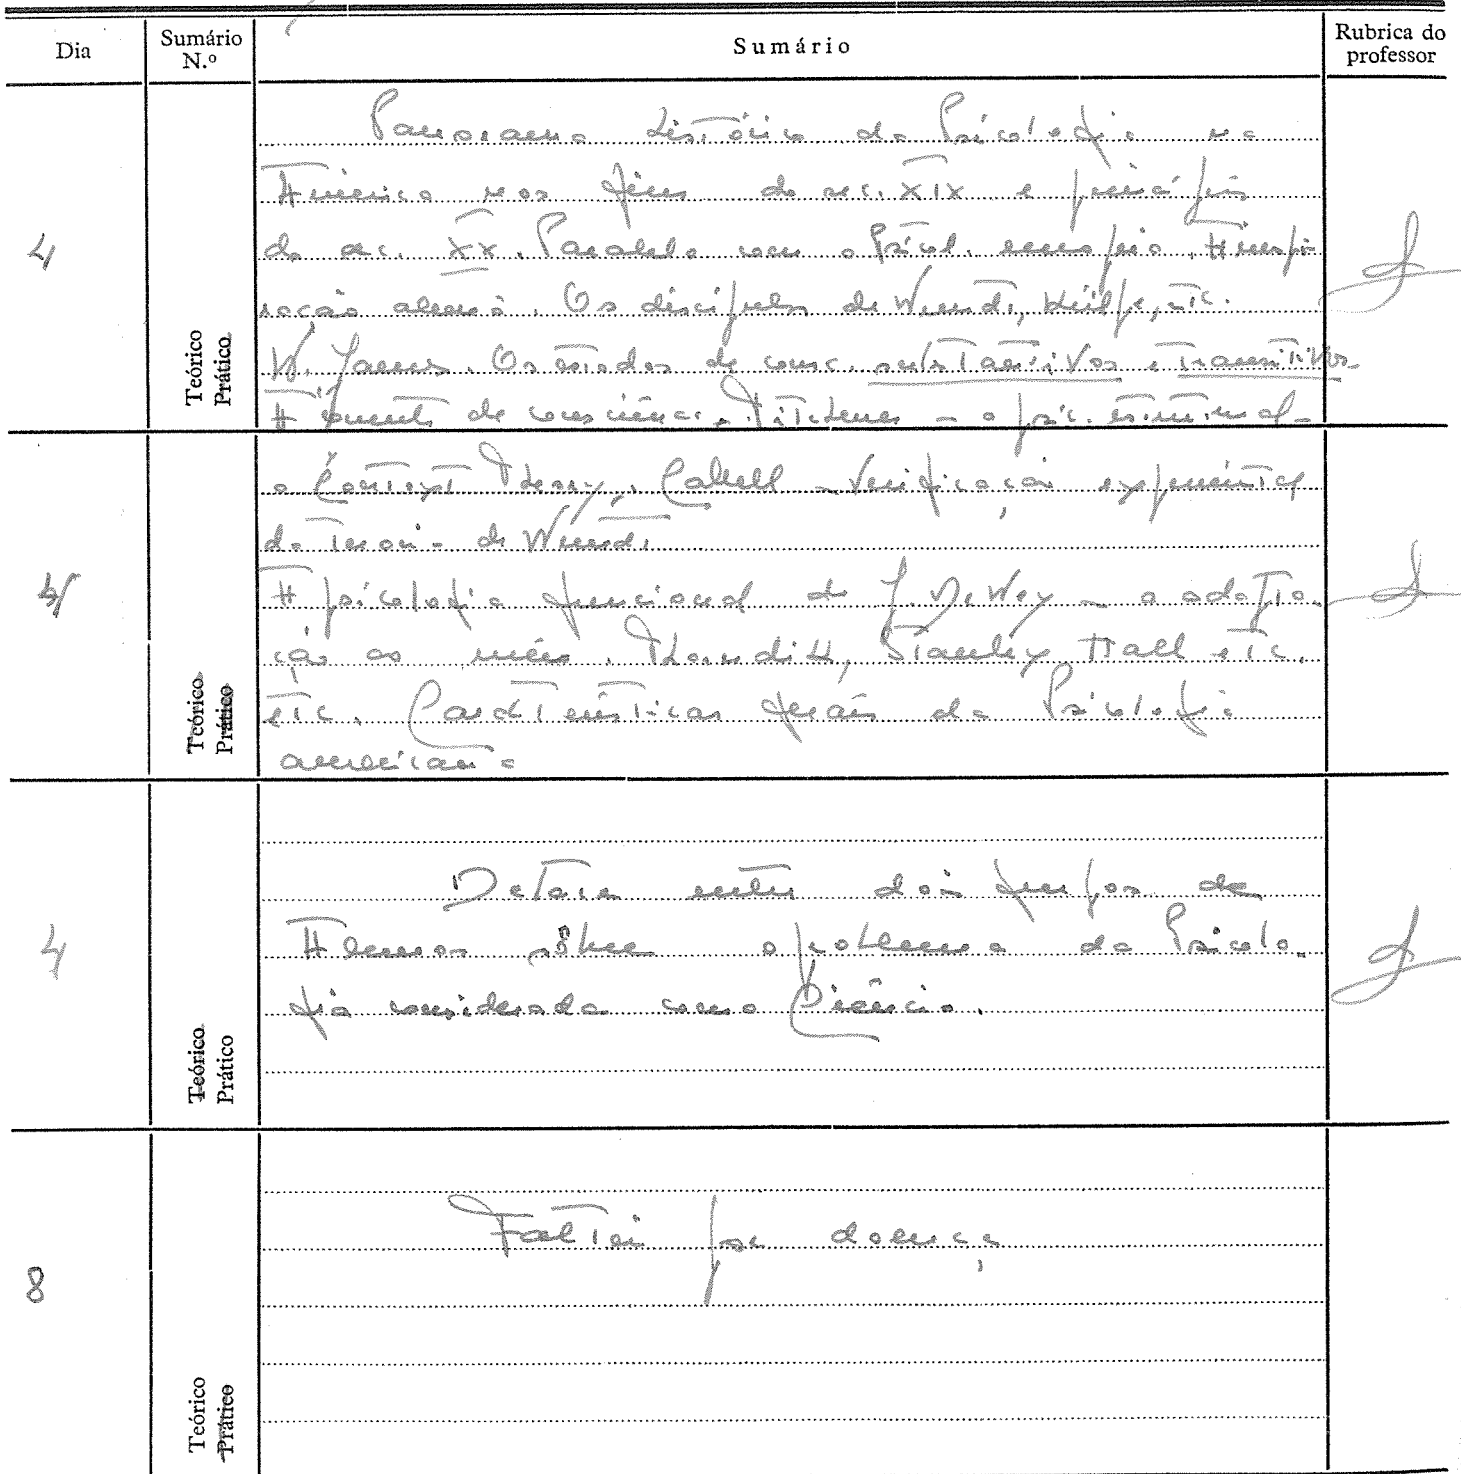 Dia Sumário N.º Sumário Rubrica do professor
Panorama histórico da Psicologia na
América nos fins do sec. XIX e princípios
4 do sec. XX. Paralelo com a Psicol. europeia. A inspi-
ração alemã. Os discípulos de Wundt, Külpe, etc.
Teórico Prático
W. James. Os estados de consc. substantivos e transitivos.
A de consciência. Titchener - a psic. estrutural -
a Context Theory. Cattell - Verificação experimental
da teoria de Wundt
4 A psicologia funcional de J. Dewey - a adapta-
ção ao meio. Thorndike, Stanley Hall etc.
Teórico Prático
etc. Características gerais da Psicologia
americana
Debate entre dois grupos de
4 Alunos sôbre o problema da Psicolo-
gia considerada como Ciência.
Teórico Prático
Faltei por doença
8
Teórico Prático